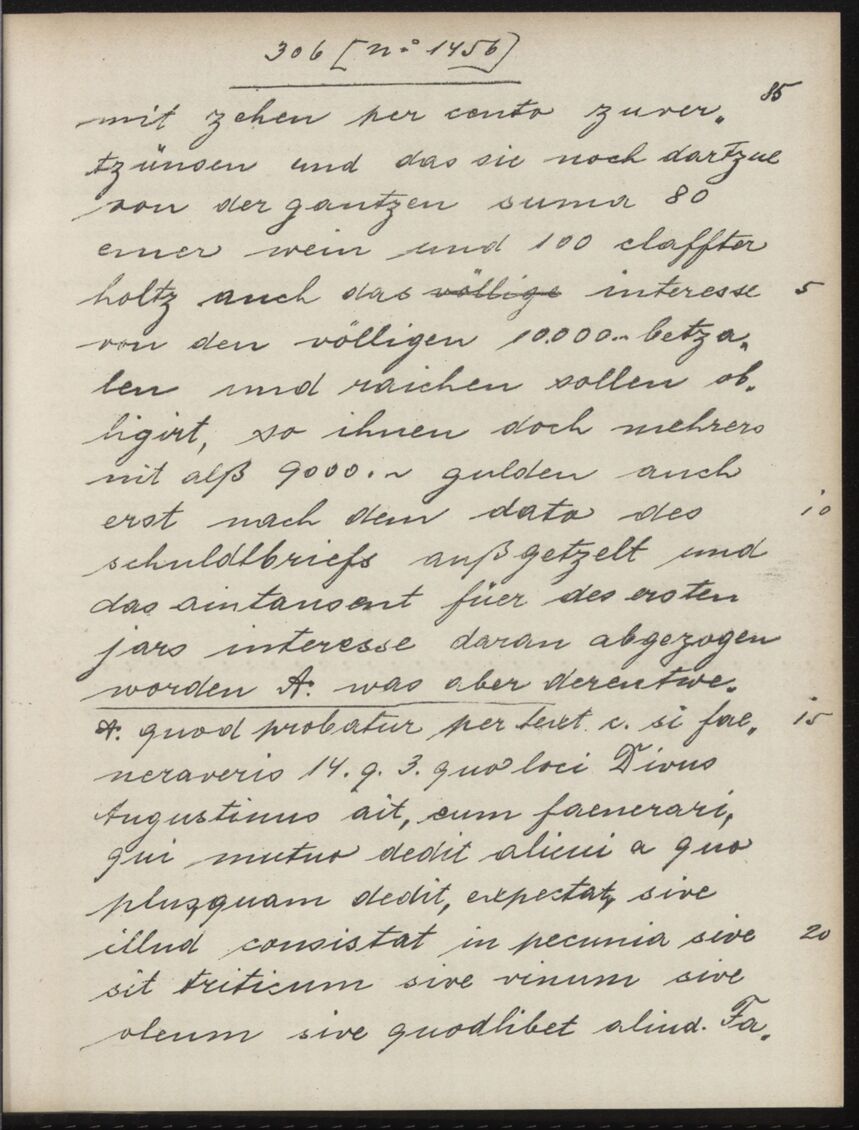 306 [n:o 1456]
85
mit zehen per cento zuver„
tzünsen und das sie noch dartzue
von der gantzen suma 80
emer wein und 100 claffter
holtz auch das völlige interesse 5
von den völligen 10.000.~ betza„
len und raichen sollen ob„
ligirt, so ihnen doch mehrers
nit alß 9000.~ gulden auch
erst nach dem dato des 10
schuldtbriefs außgetzelt und
das aintausent füer des ersten
jars interesse daran abgezogen
worden A. was aber derentwe„
A. quod probatur per text. c. si fae„ 15
neraveris 14. q. 3. quo loci Divus
Augustinus ait, eum faenerari,
qui mutuo dedit alicui a quo
plusquam dedit, expectat, sive
illud consistat in pecunia sive 20
sit triticum sive vinum sive
oleum sive quodlibet aliud. Fa„